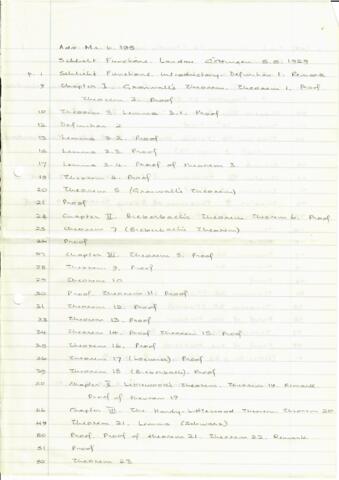 Add. Ms. b. 195
Schlicht Functions. London Göttingen S.S. 1929
p. 1 Schlicht Functions. Introductory. Definition 1. Remark
Chapter I. Gronwall's Theorem. Theorem 1. Proof
Theorem 2. Proof
10 Theorem 3. Lemma 3.1. Proof
12 Definition 2
Lemma 3.2. Proof
16 Lemma 3.3. Proof
17 Lemma 3.4. Proof of Theorem 3
Theorem 4. Proof
20 Theorem 5 (Gronwall's Theorem)
21 Proof
24 Chapter II. Bieberbach's Theorem Theorem 6. Proof
25 Theorem 7 (Bieberbach's Theorem)
26 Proof
27 Chapter III. Theorem 8. Proof
28 Theorem 9. Proof
29 Theorem 10
30 Proof. Theorem 11. Proof
31 Theorem 12. Proof
33 Theorem 13. Proof
34 Theorem 14. Proof Theorem 15. Proof
35 Theorem 16. Proof
36 Theorem 17 (Löwner). Proof
39 Theorem 18 (Bieberbach). Proof
Chapter V. Littlewood's Theorem. Theorem 19. Remark
Proof of Theorem 19
46 Chapter VI. The Hardy-Littlewood Theorem. Theorem 20
49 Theorem 21. Lemma (Schwarz)
50 Proof. Proof of Theorem 21. Theorem 22. Remark
51 Proof
52 Theorem 23